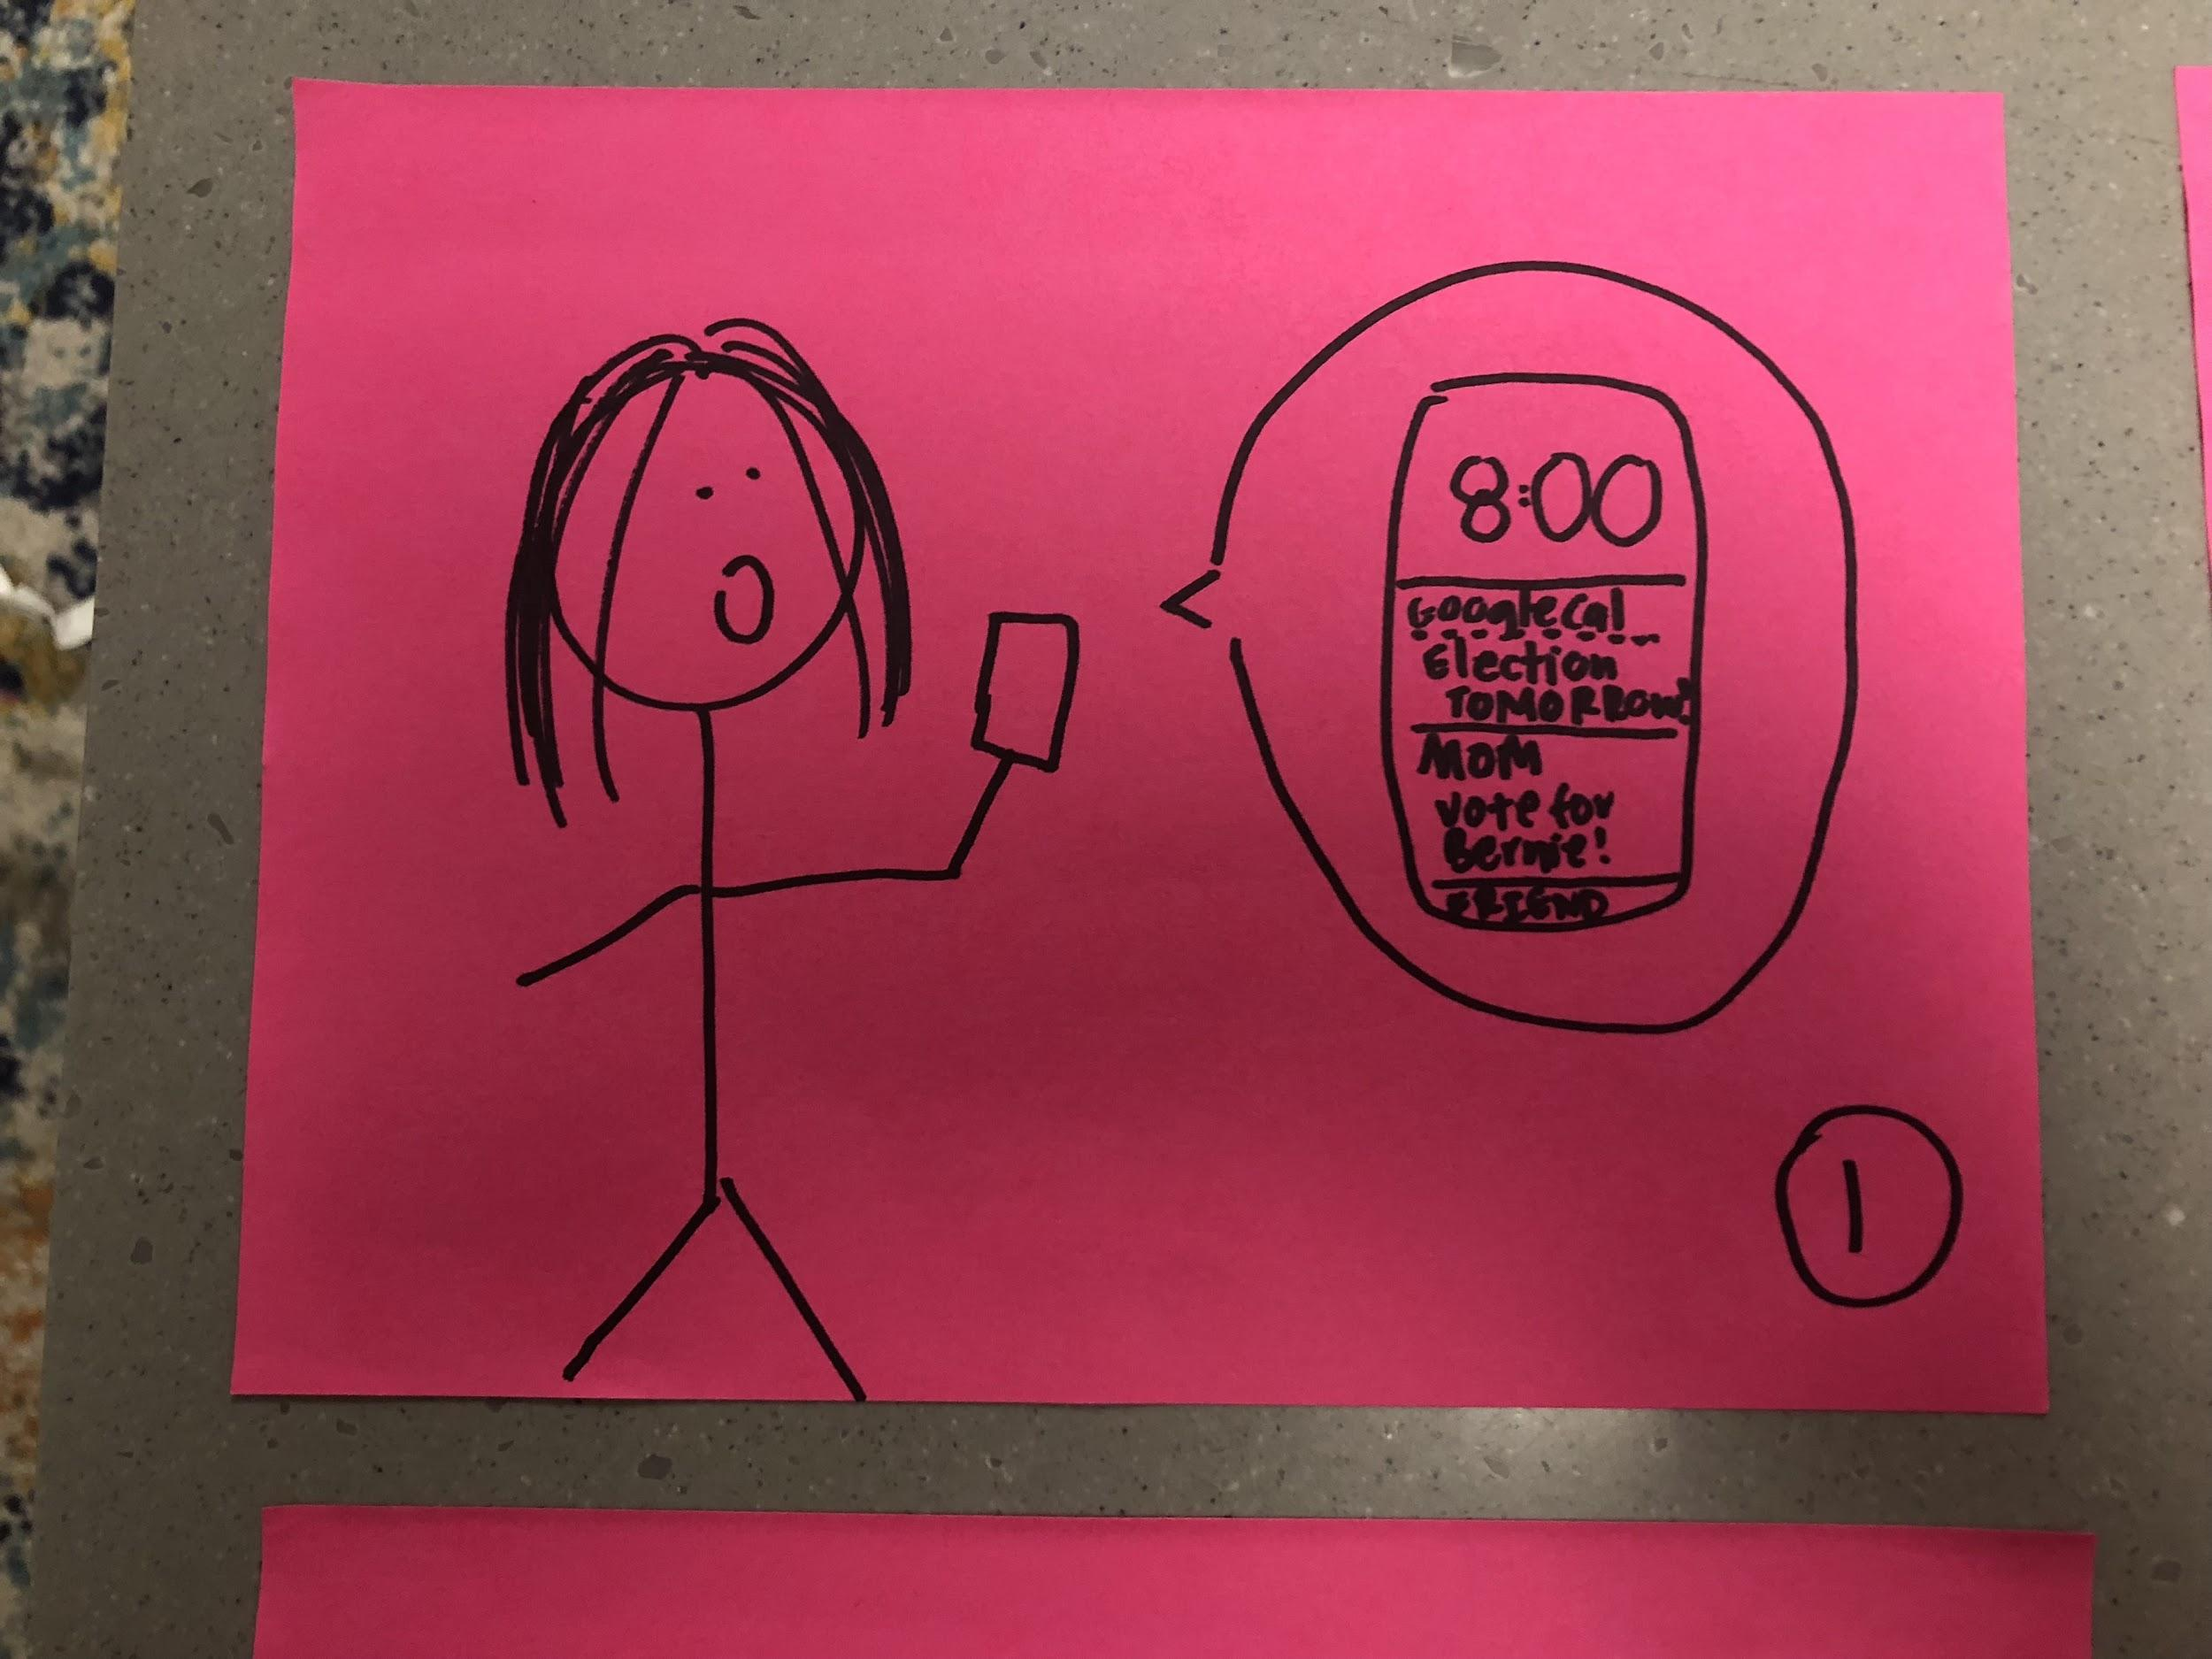 8:00
Google Cal
Election
TOMORROW!
MOM
vote for
Bernie!
FRIEND
1